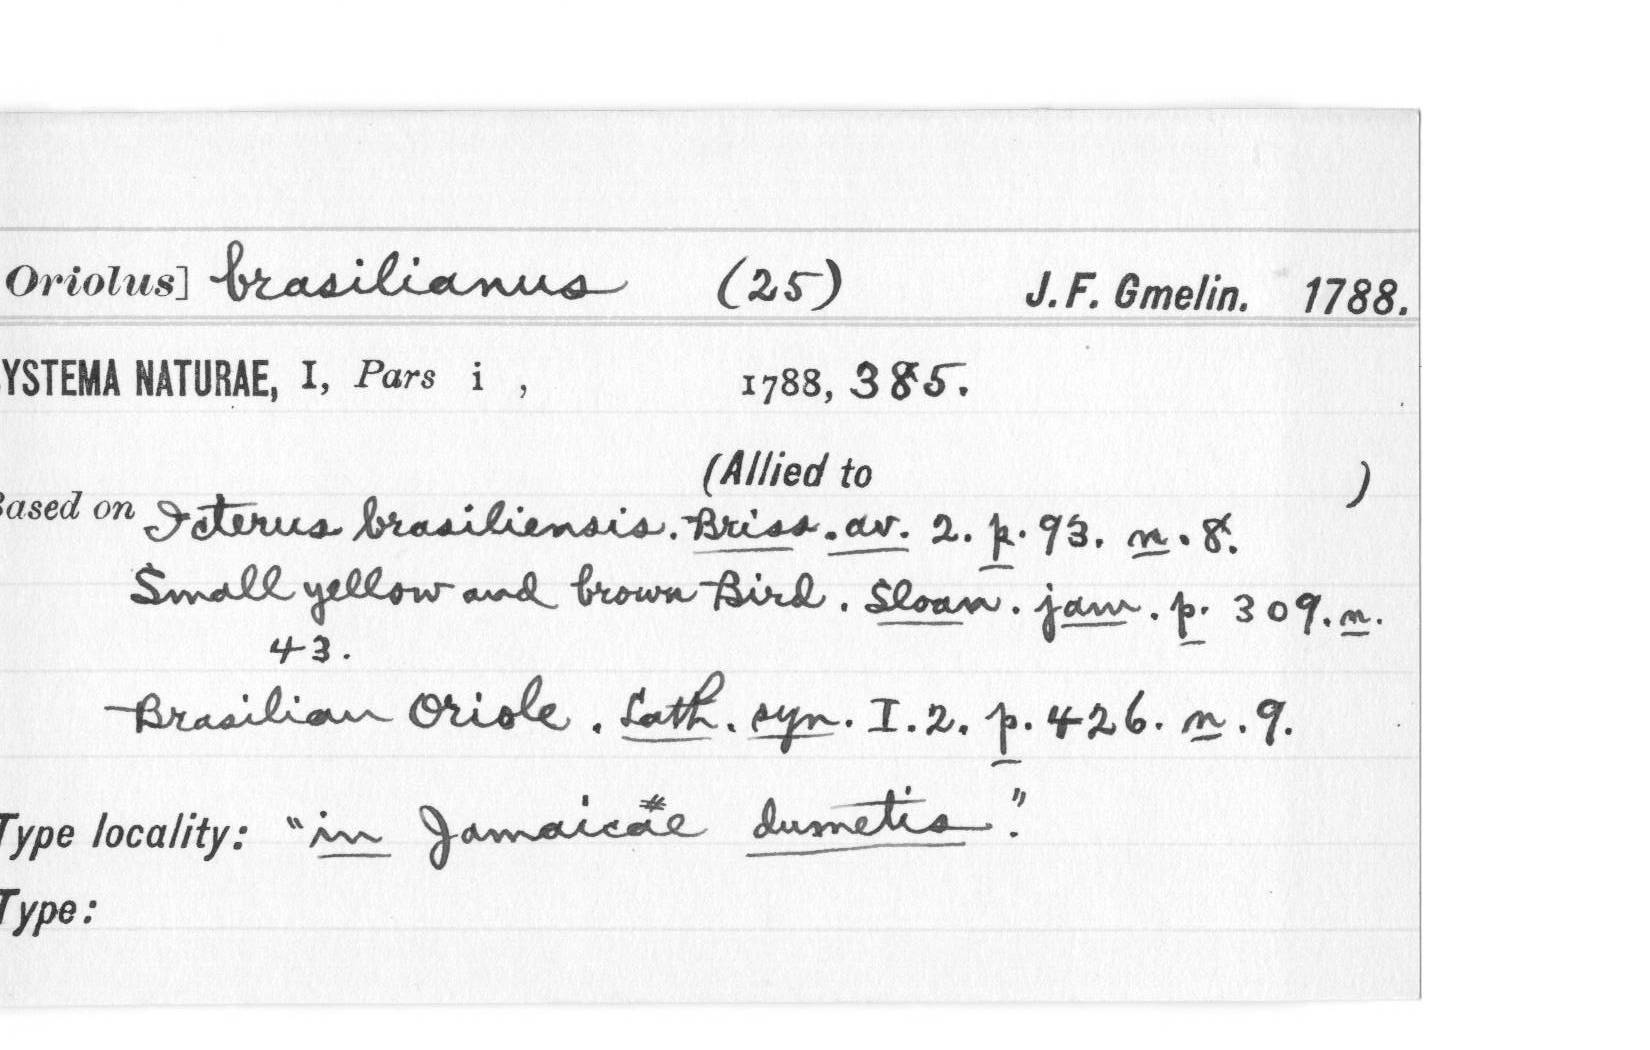 Oriolus] brasilianus (25) J. F. Gmelin. 1788.
YSTEMA NATURAE, I, Pars i , 1788, 385.
(Allied to )
Based on Icterus brasiliensis. Briss. av. 2. p. 93. n. 8.
Small yellow and brown Bird. Sloan. jam. p. 309. n.
43.
Brasilian Oriole. Lath. syn. I. 2. p. 426. n. 9.
#
Type locality: "in Jamaicae dumetis."
Type: